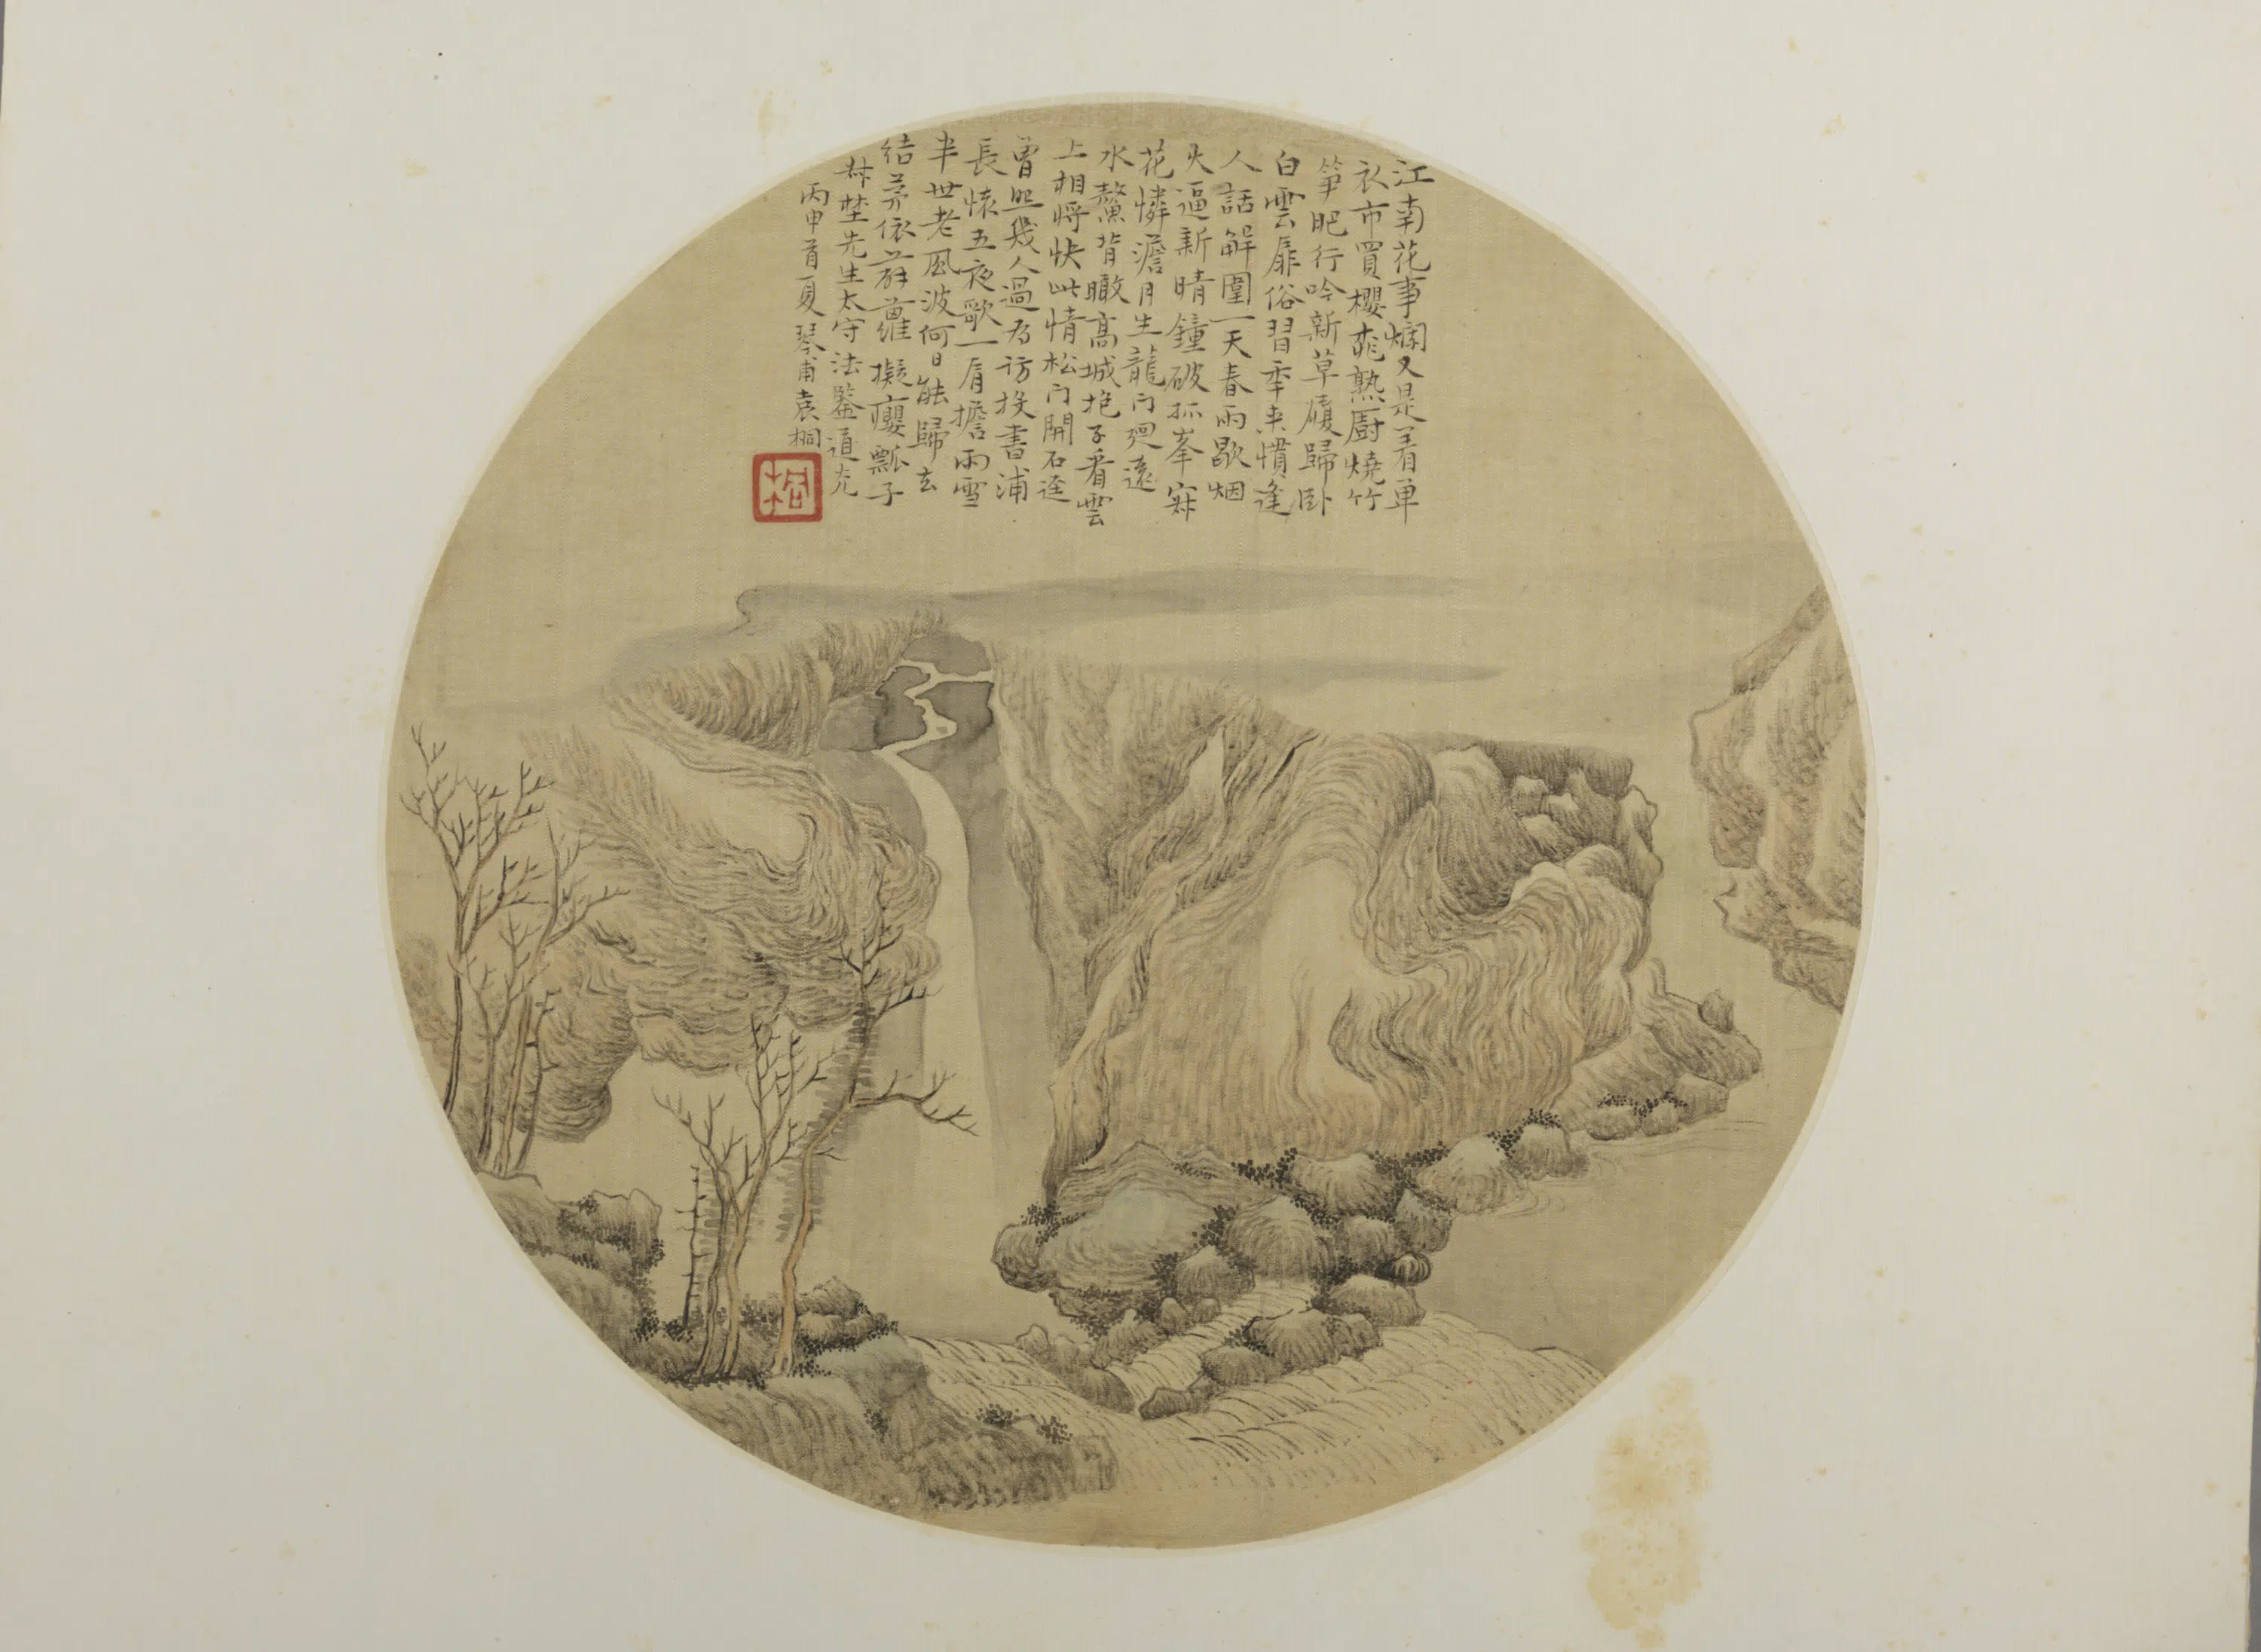 江南花事爛又是着单
衣市買櫻桃熟厨燒竹
筍肥行吟新草履歸卧
白雲扉俗習年來慣逢
人話解圍一天春雨歇烟
火逼新晴鐘破孤峯寂
花憐澹月生龍門迥遠
水鰲背瞰髙城抱子看雲
上相将快此情松门開石迳
曾無幾人過为访投書浦
長懐五夜歌一肩擔雨雪
半世老風波何日能歸去
结茅依薜蘿擬癭瓢子
埜先生太守法鑒道光
丙申首夏琴甫袁桐
桐